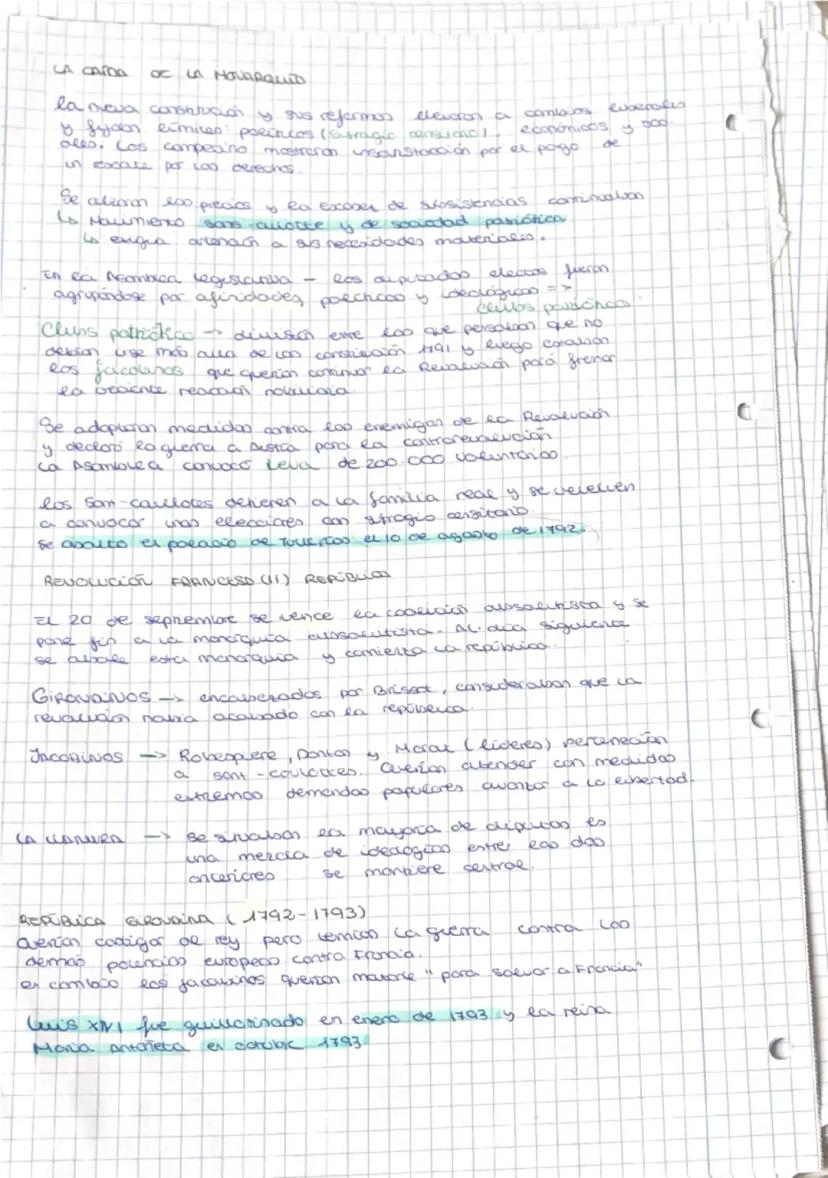 LA CAÍDA DE LA MONARQUÍA
la nueva constitución y sus reformas llevaron a cambios liberales
y fijaron límites: políticos (sufragio censitario), económicos y soci-
ales. Los campesino mostraron insatisfacción por el pago de
un rescate por los derechos.
Se alzaron los precios y la escasez de subsistencias continuaban
↳ Nacimiento sans-culotte y de sociedad patriótica
↳ exigía atención a sus necesidades materiales.
En la Asamblea Legislativa - los diputados electos fueron
agrupándose por afinidades, políticas y ideológicas =>
clubs patrióticos.
Clubs patriótico -> división entre los que pensaban que no
debían irse más allá de la constitución 1791 y luego estaban
los jacobinos que querían continuar la Revolución para frenar
la creciente reacción nobiliaria
Se adoptaron medidas contra los enemigos de la Revolución
y declaró la guerra a Austria para la contrarevolución
La Asamblea convocó leva de 200.000 voluntarios.
los sant-coulotes detienen a la familia real y se vuelven
a convocar unas elecciones con sufragio censitario
Se asaltó el palacio de Tullerías el 10 de agosto de 1792.
REVOLUCIÓN FRANCESA (II) REPÚBLICA
El 20 de septiembre se vence la coalición absolutista y se
pone fin a la monarquía absolutista. Al día siguiente
se abole esta monarquía y comienza la república.
GIRONDINOS -> encabezados por Brissot, consideraban que la
revolución había acabado con la república.
JACOBINOS -> Robespiere, Danton y Marat (líderes) pertenecían
a sant-coulottes. Querían atender con medidas
extremas demandas populares avanzar a la libertad.
LA LLANURA -> se situaban la mayoría de diputados es
una mezcla de ideologías entre las dos
anteriores se mantiene central.
REPÚBLICA GIRONDINA (1792-1793)
Querían castigar al rey pero temían la guerra contra los
demás potencias europeas contra Francia.
en cambio los jacobinos querían matarle "para salvar a Francia"
Luis XVI fue guillotinado en enero de 1793 y la reina
María Antoñeta en octubre 1793